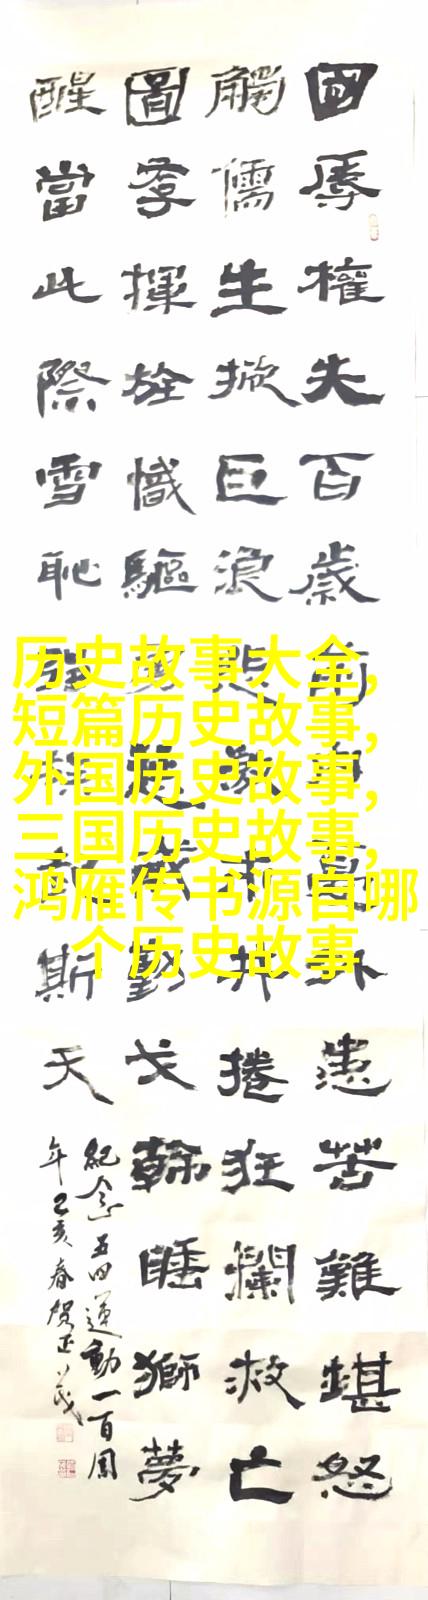 國辱權失百歲前外患苦難堪怒
觸儒生掀巨浪捲狂瀾救亡
圖存揮旌幟驅戈睡獅夢
醒當此際雪恥斯天
紀念五四運動一百周
年己亥春贺正茂
历史故事大全,
短篇历史故事,
外国历史故事,
三国历史故事,
鸿雁传书源自哪
个历史故事